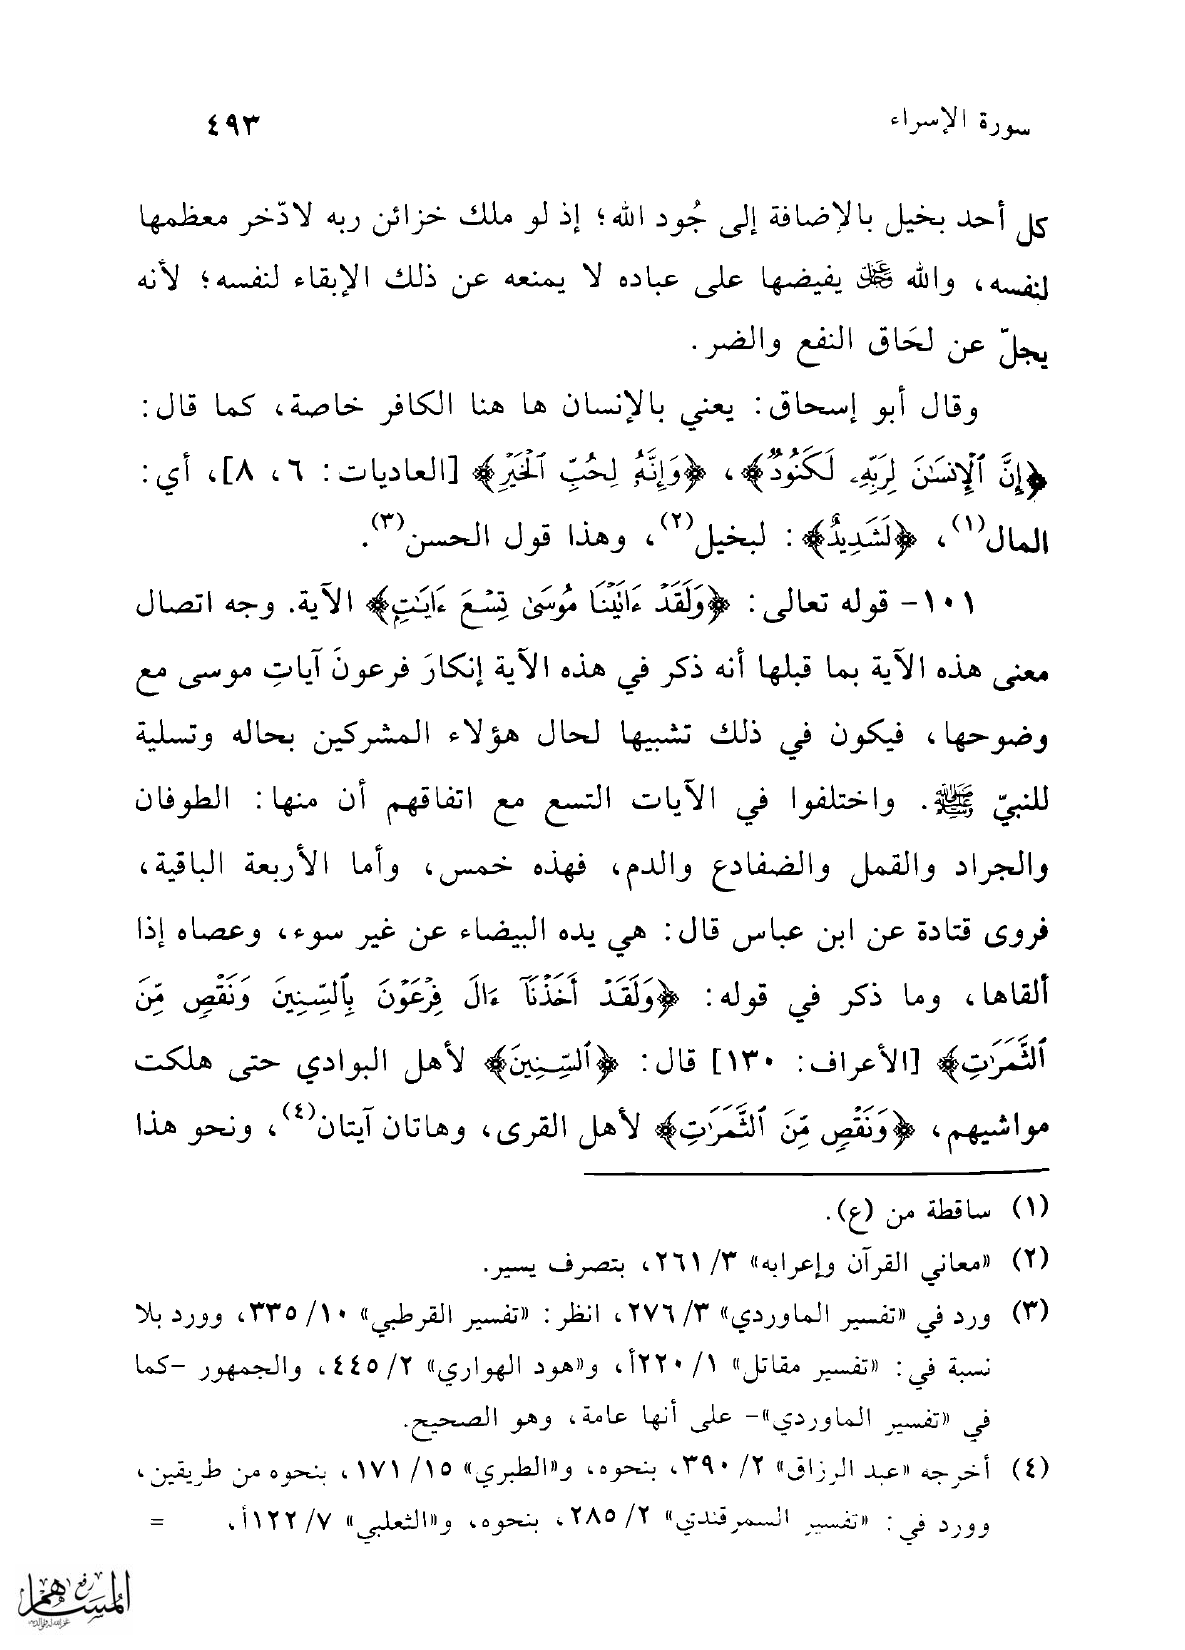 سورة الإسراء ٤٩٣
كل أحد بخيل بالإضافة إلى جُود الله؛ إذ لو ملك خزائن ربه لادّخر معظمها
لنفسه، والله ﷿ يفيضها على عباده لا يمنعه عن ذلك الإبقاء لنفسه؛ لأنه
يجلّ عن لحَاق النفع والضر.
وقال أبو إسحاق: يعني بالإنسان ها هنا الكافر خاصة، كما قال:
﴿إِنَّ ٱلْإِنسَٰنَ لِرَبِّهِۦ لَكَنُودٌ﴾، ﴿وَإِنَّهُۥ لِحُبِّ ٱلْخَيْرِ﴾ [العاديات: ٦، ٨]، أي:
المال(١)، ﴿لَشَدِيدٌ﴾: لبخيل(٢)، وهذا قول الحسن(٣).
١٠١- قوله تعالى: ﴿وَلَقَدْ ءَاتَيْنَا مُوسَىٰ تِسْعَ ءَايَٰتٍ﴾ الآية. وجه اتصال
معنى هذه الآية بما قبلها أنه ذكر في هذه الآية إنكارَ فرعونَ آياتِ موسى مع
وضوحها، فيكون في ذلك تشبيها لحال هؤلاء المشركين بحاله وتسلية
للنبيّ ﷺ. واختلفوا في الآيات التسع مع اتفاقهم أن منها: الطوفان
والجراد والقمل والضفادع والدم، فهذه خمس، وأما الأربعة الباقية،
فروى قتادة عن ابن عباس قال: هي يده البيضاء عن غير سوء، وعصاه إذا
ألقاها، وما ذكر في قوله: ﴿وَلَقَدْ أَخَذْنَآ ءَالَ فِرْعَوْنَ بِٱلسِّنِينَ وَنَقْصٍ مِّنَ
ٱلثَّمَرَٰتِ﴾ [الأعراف: ١٣٠] قال: ﴿ٱلسِّنِينَ﴾ لأهل البوادي حتى هلكت
مواشيهم، ﴿وَنَقْصٍ مِّنَ ٱلثَّمَرَٰتِ﴾ لأهل القرى، وهاتان آيتان(٤)، ونحو هذا
(١) ساقطة من (ع).
(٢) «معاني القرآن وإعرابه» ٣/ ٢٦١، بتصرف يسير.
(٣) ورد في «تفسير الماوردي» ٣/ ٢٧٦، انظر: «تفسير القرطبي» ١٠/ ٣٣٥، وورد بلا
نسبة في: «تفسير مقاتل» ١/ ٢٢٠أ، و«هود الهواري» ٢/ ٤٤٥، والجمهور -كما
في «تفسير الماوردي»- على أنها عامة، وهو الصحيح.
(٤) أخرجه «عبد الرزاق» ٢/ ٣٩٠، بنحوه، و«الطبري» ١٥/ ١٧١، بنحوه من طريقين،
وورد في: «تفسير السمرقندي» ٢/ ٢٨٥، بنحوه، و«الثعلبي» ٧/ ١٢٢أ، =
رفع
المساهم